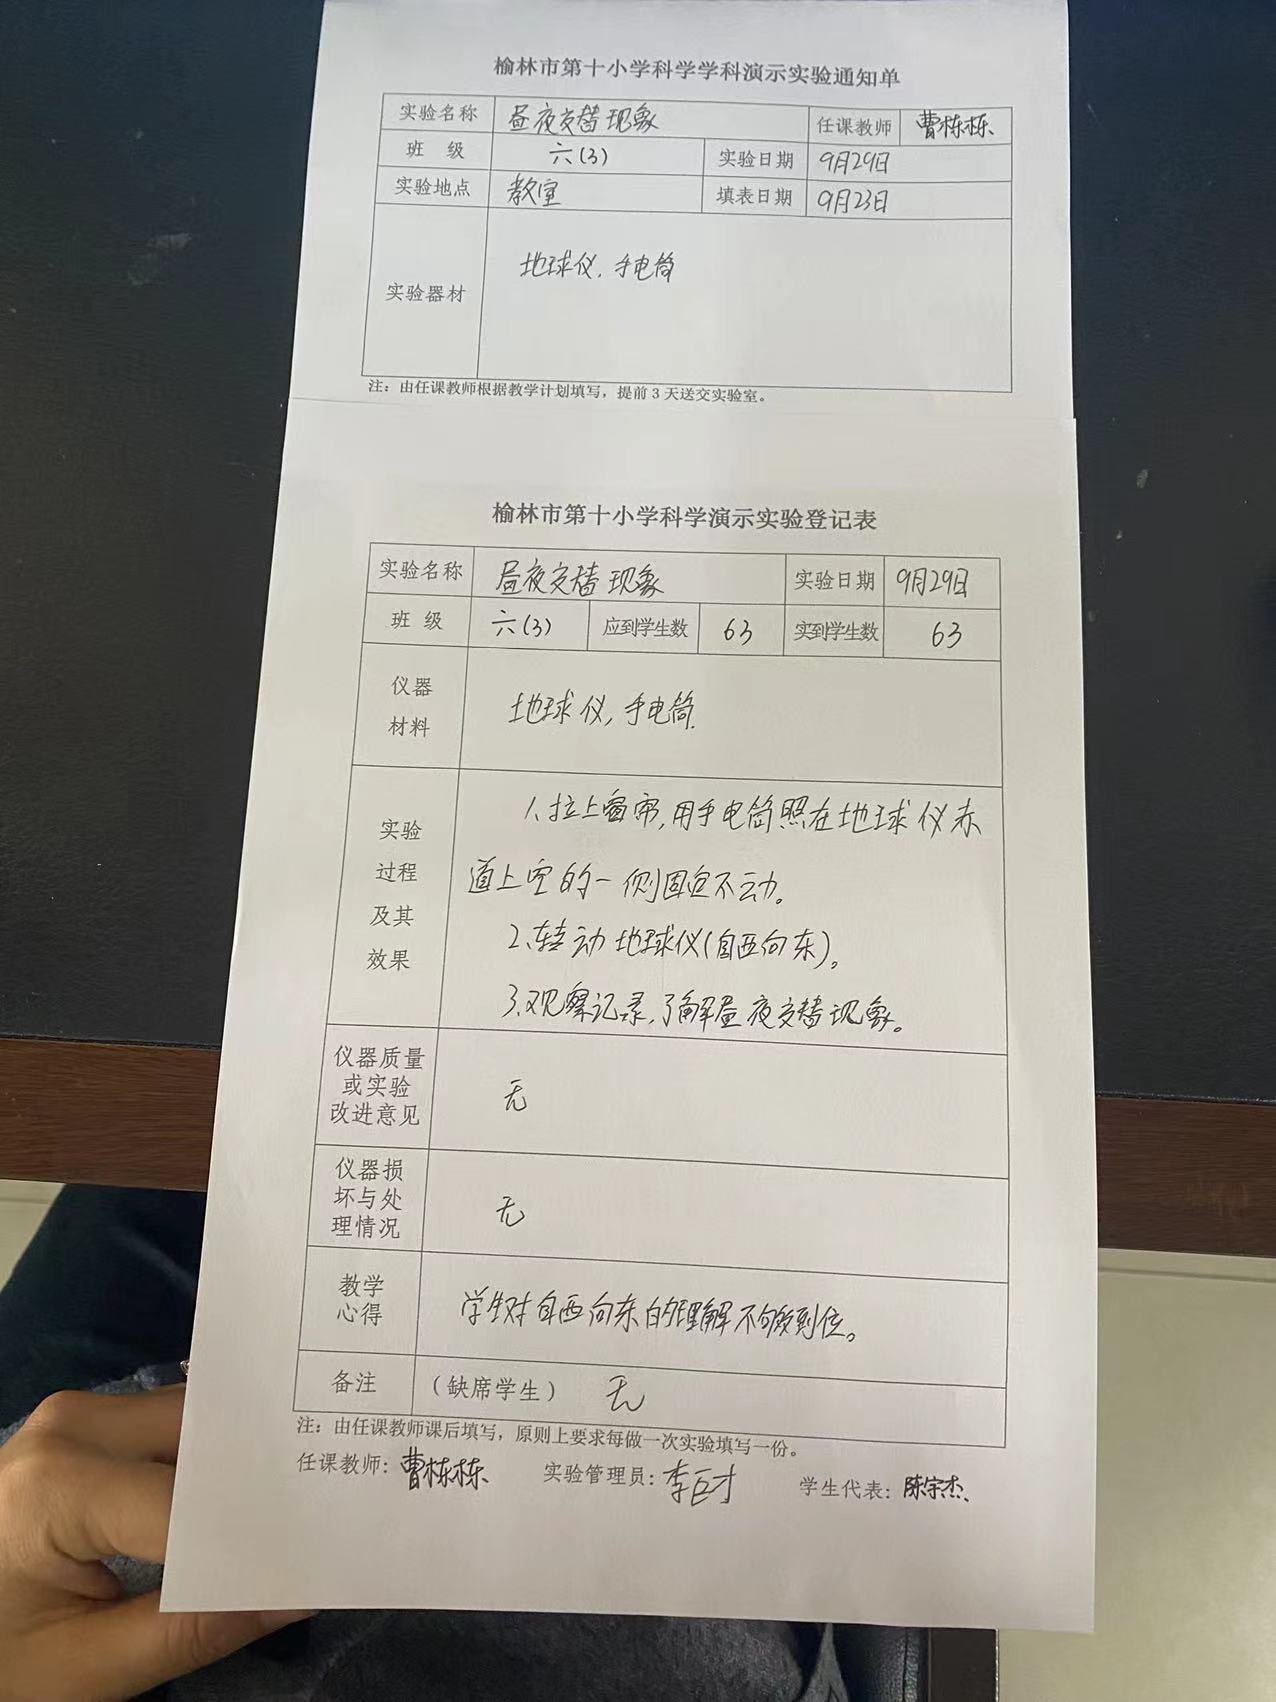 榆林市第十小学科学学科演示实验通知单
实验名称 昼夜交替现象 任课教师 曹栋栋
班 级 六(3) 实验日期 9月29日
实验地点 教室 填表日期 9月23日
实验器材 地球仪,手电筒
注：由任课教师根据教学计划填写，提前3天送交实验室。
榆林市第十小学科学演示实验登记表
实验名称 昼夜交替现象 实验日期 9月29日
班 级 六(3) 应到学生数 63 实到学生数 63
仪器
材料
地球仪,手电筒.
实验
过程
及其
效果
1、拉上窗帘,用手电筒照在地球仪赤
道上空的一侧固定不动。
2、转动地球仪(自西向东)。
3、观察记录,了解昼夜交替现象。
仪器质量
或实验
改进意见
无
仪器损
坏与处
理情况
无
教学
心得
学生对自西向东的理解不够到位。
备注 （缺席学生） 无
注：由任课教师课后填写，原则上要求每做一次实验填写一份。
任课教师：曹栋栋 实验管理员：李巨才 学生代表：陈宇杰